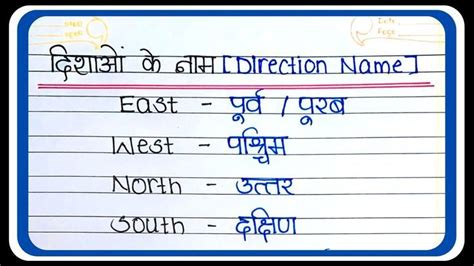 दिशाओं के नाम [Direction Name]
East - पूर्व / पूरब
West - पश्चिम
North - उत्तर
South - दक्षिण